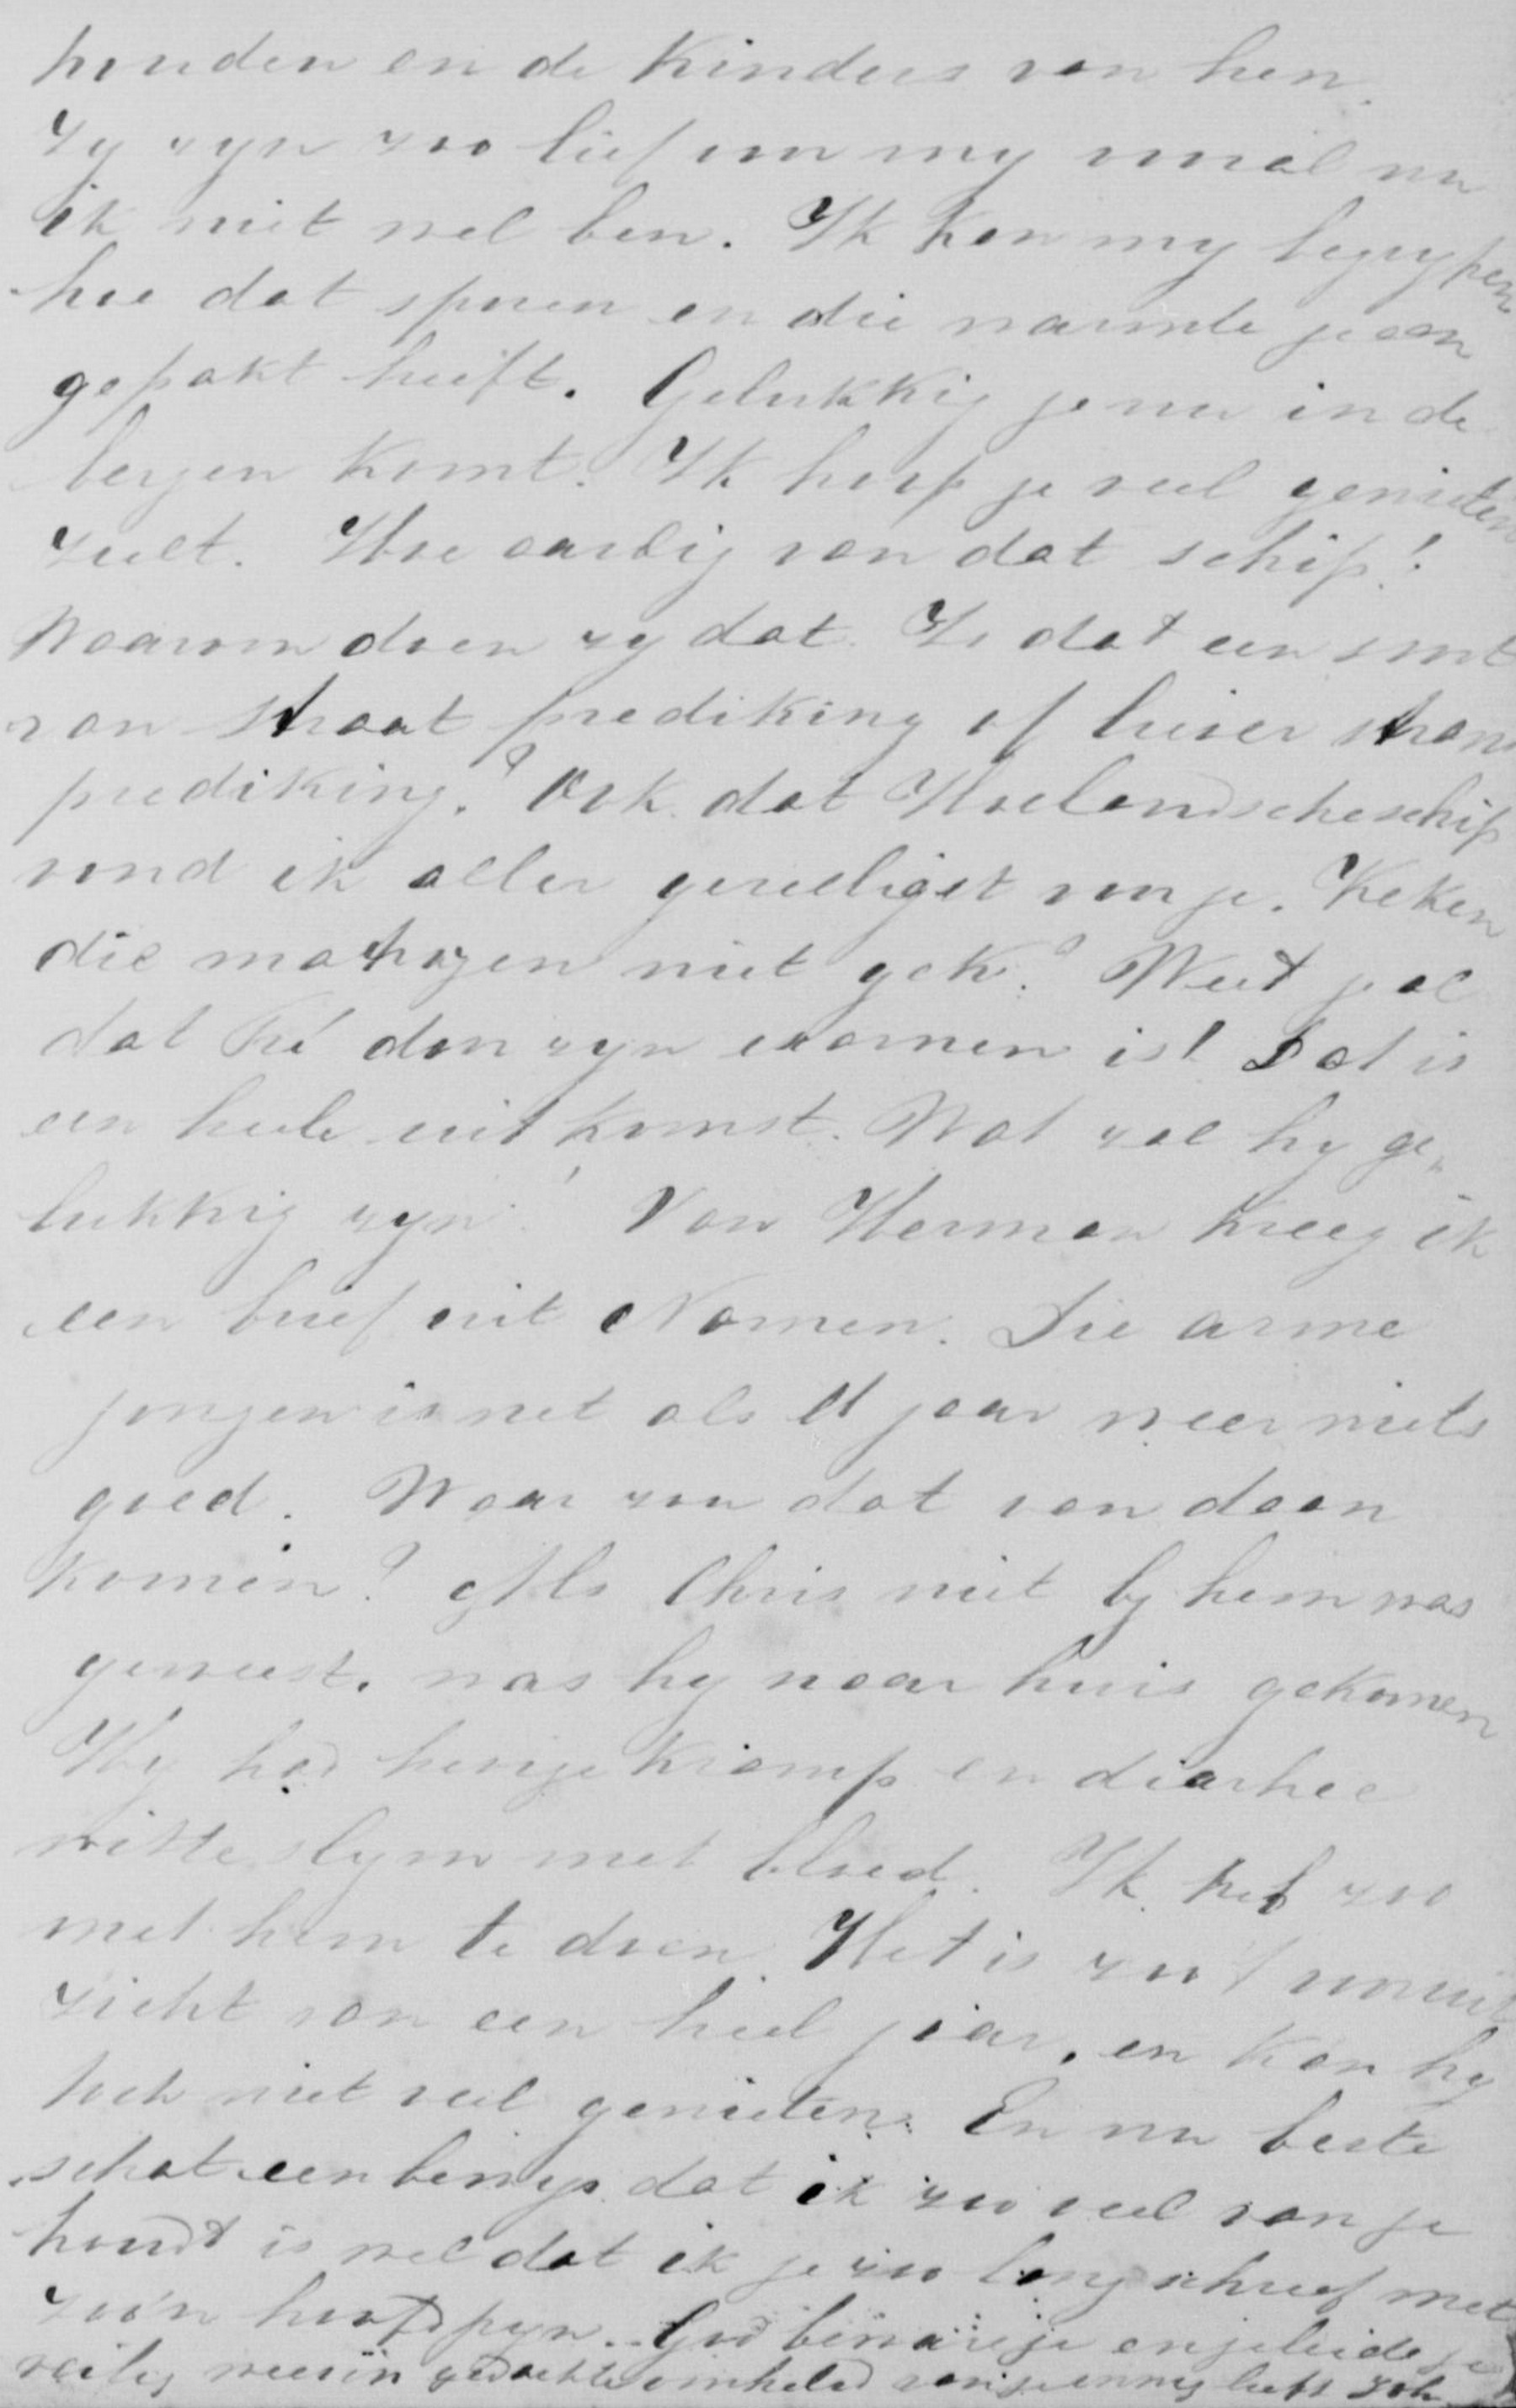 houden en de Kinders van hen.
Zy zyn zoo lief om my vooral nu
ik niet wel ben. Ik kan my begrypen
hoe dat sporen en die warmte je aan
gepakt heeft. Gelukkig je nu in de
bergen komt. Ik hoop je veel genieten
zult. Hoe aardig van dat schip!
Waarom doen zy dat. Is dat een soort
van straat prediking of liever
prediking? Ook dat Hollandsche schip
vond ik aller gezelligst van je. Keken
die matrozen niet gek? Weet je al
dat door zyn examen is! Dat is
een heele uitkomst. Wat zal hy ge„
lukkig zyn! Van Herman kreeg ik
een brief uit Namen. Die arme
jongen is net als 't jaar weer niets
goed. Waar zou dat van daan
komen? Als Chris niet by hem was
geweest, was hy naar huis gekomen
Hy had hevige kramp en diarhee
witte slym met bloed. Ik heb zoo
met hem te doen. Het is zoo 't vooruit
zicht van een heel jaar, en kan hy
toch niet veel genieten. En nu beste
schat een bewys dat ik zoo veel van je
houdt is wel dat ik je zoo lang schreef met
zoo'n hoofdpyn. God beware je en geleide je
veilig weer in gedachte omhelsd van je innig liefh